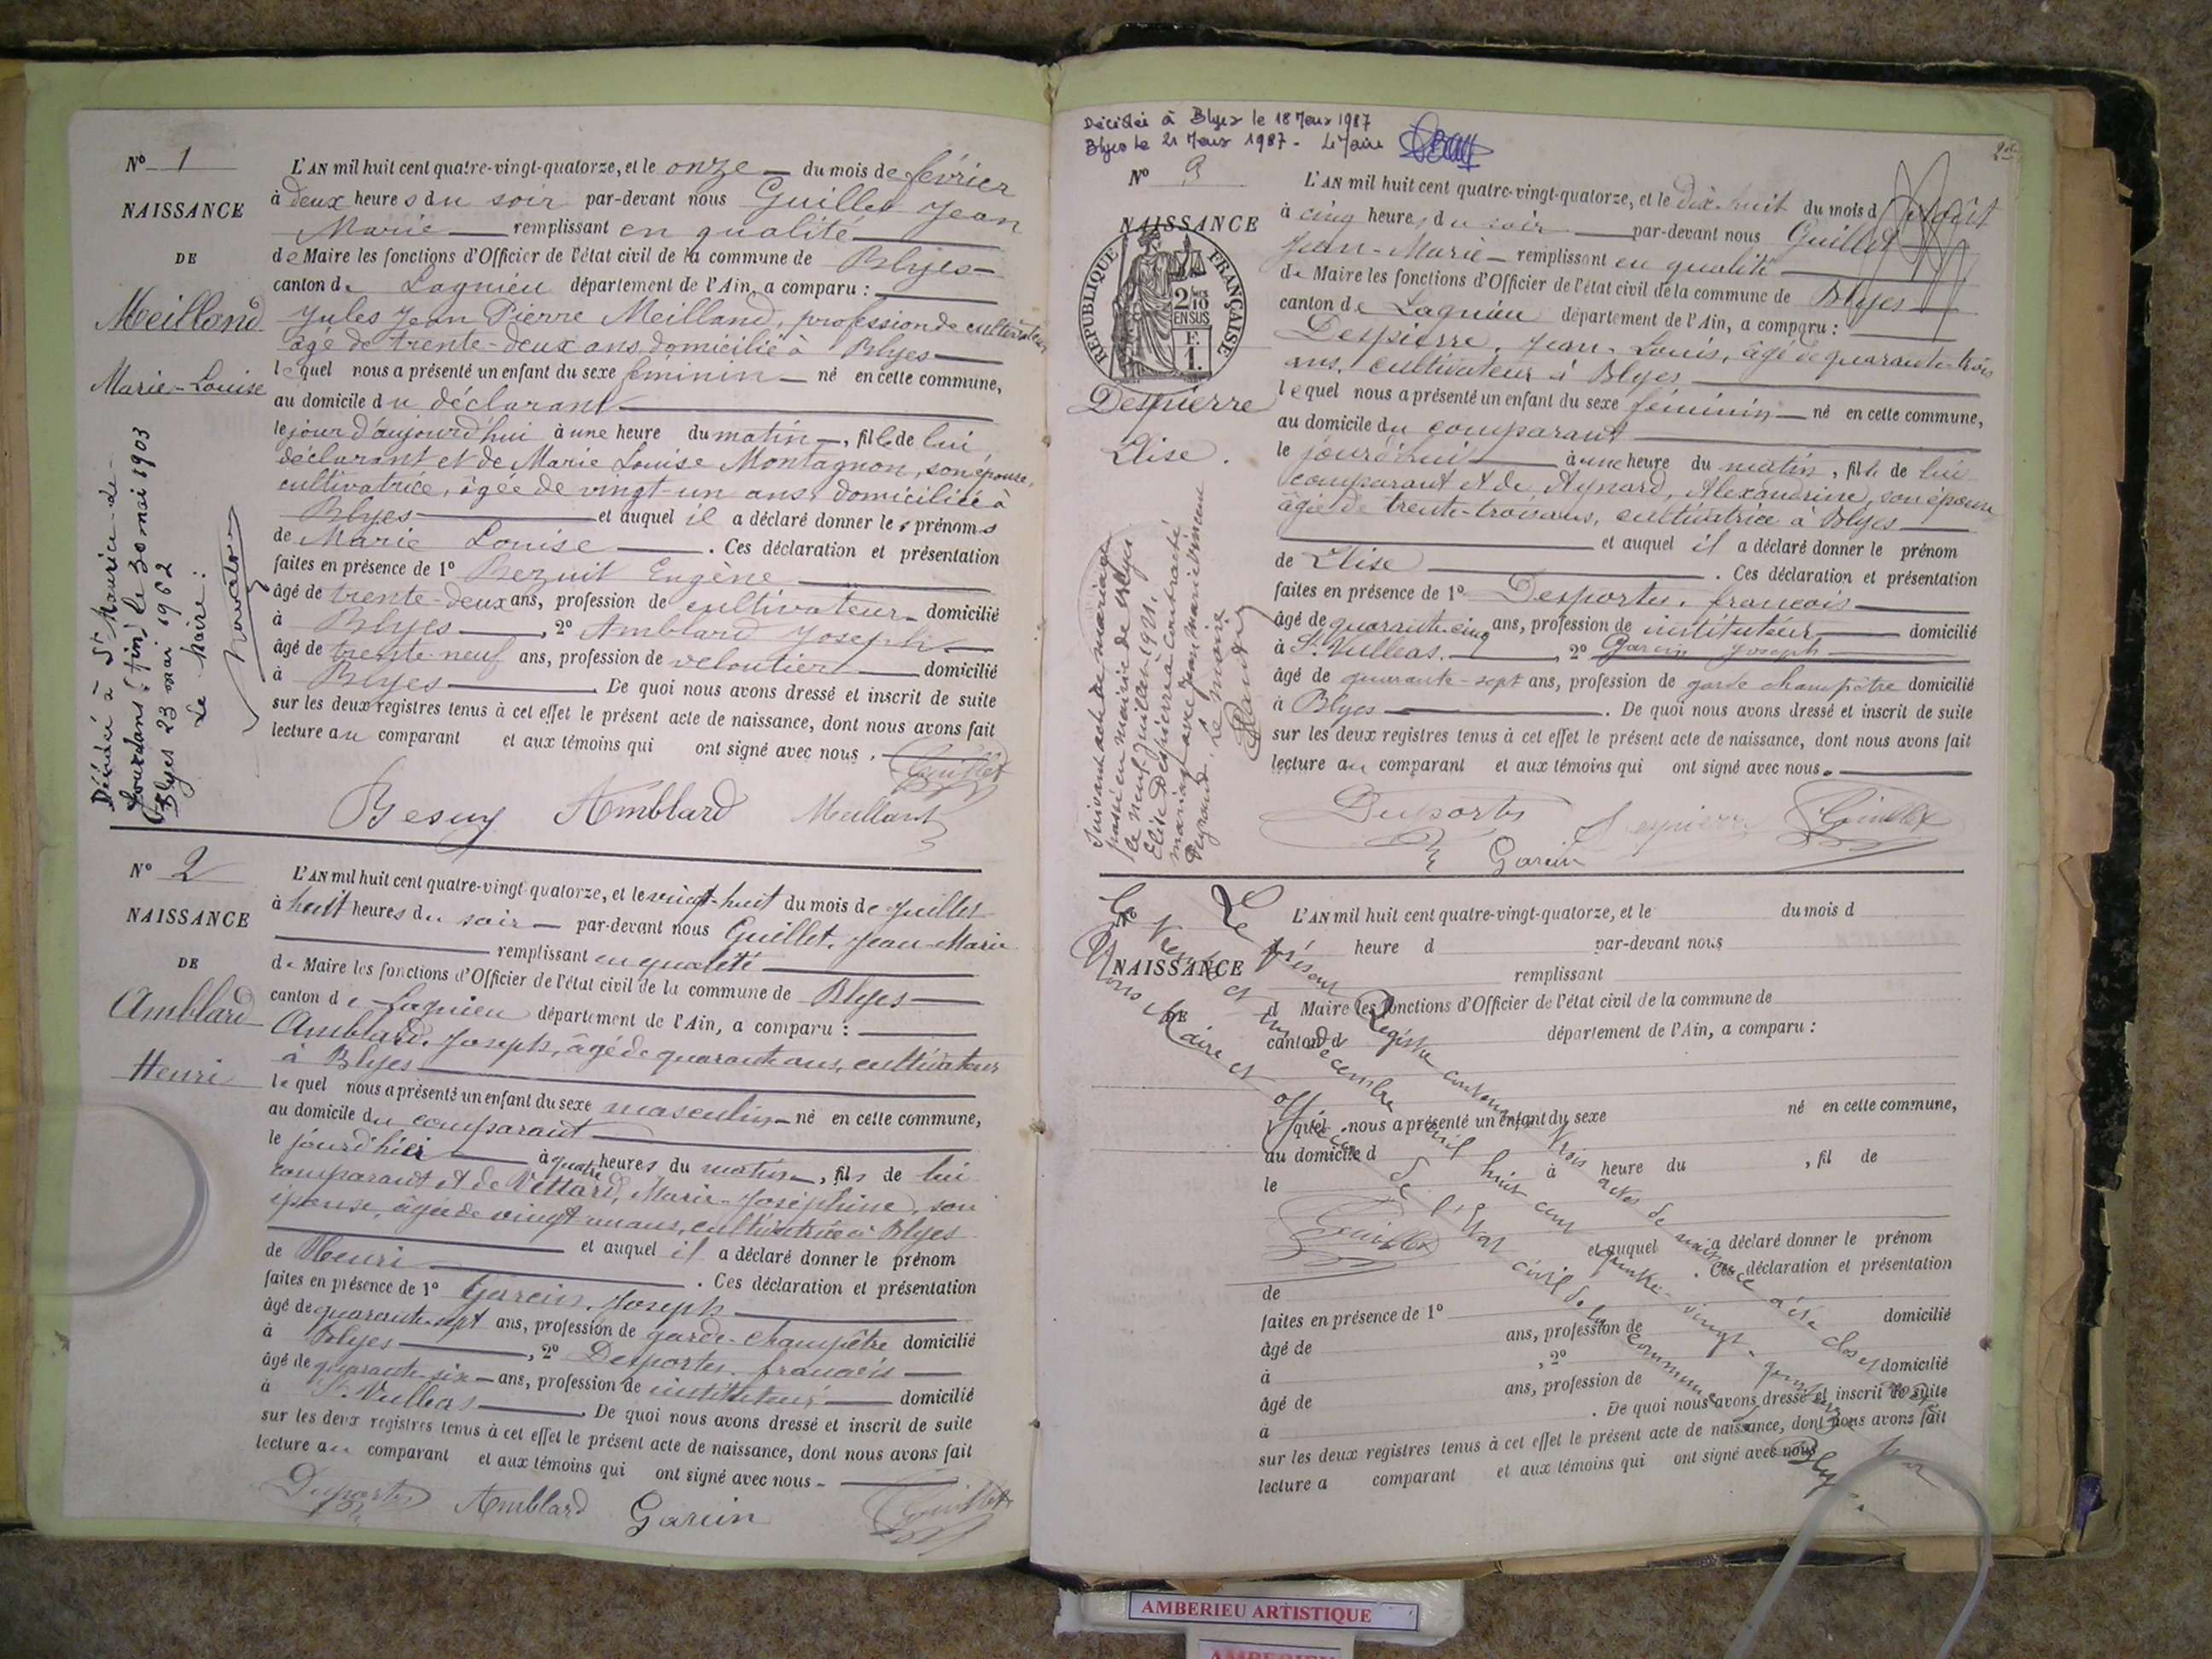 N° 1
NAISSANCE
DE
Meilland
Marie-Louise
L'AN mil huit cent quatre-vingt-quatorze, et le onze du mois de février
à deux heures du soir par-devant nous Guillet Jean
Marie remplissant en qualité
de Maire les fonctions d'Officier de l'état civil de la commune de Blyes
canton de Lagnieu département de l'Ain, a comparu :
Jules Jean Pierre Meilland, profession de cultivateur
âgé de trente-deux ans domicilié à Blyes
lequel nous a présenté un enfant du sexe féminin né en cette commune,
au domicile du déclarant
le jour d'aujourd'hui à une heure du matin, fille de lui
déclarant et de Marie Louise Montagnon, son épouse,
cultivatrice, âgée de vingt-un ans domiciliée à
Blyes et auquel il a déclaré donner les prénoms
de Marie Louise . Ces déclaration et présentation
faites en présence de 1° Bezuit Eugène
âgé de trente-deux ans, profession de cultivateur domicilié
à Blyes, 2° Amblard Joseph
âgé de trente-neuf ans, profession de veloutier domicilié
à Blyes . De quoi nous avons dressé et inscrit de suite
sur les deux registres tenus à cet effet le présent acte de naissance, dont nous avons fait
lecture au comparant et aux témoins qui ont signé avec nous.
Guillet
Besuy Amblard Meilland
Décédée à St Maurice-de-
Gourdans (Ain) le 30 mai 1903
Blyes 23 mai 1962
Le Maire :
N° 2
NAISSANCE
DE
Amblard
Henri
L'AN mil huit cent quatre-vingt-quatorze, et le vingt-huit du mois de juillet
à huit heures du soir par-devant nous Guillet, Jean-Marie
remplissant en qualité
de Maire les fonctions d'Officier de l'état civil de la commune de Blyes
canton de Lagnieu département de l'Ain, a comparu :
Amblard, Joseph, âgé de quarante ans, cultivateur
à Blyes
lequel nous a présenté un enfant du sexe masculin né en cette commune,
au domicile du comparant
le jour d'hier à quatre heures du matin, fils de lui
comparant et de Vettard, Marie-Joséphine, son
épouse, âgée de vingt-un ans, cultivatrice à Blyes
et auquel il a déclaré donner le prénom
de Henri . Ces déclaration et présentation
faites en présence de 1° Garcin, Joseph
âgé de quarante-sept ans, profession de garde-champêtre domicilié
à Blyes, 2° Desportes, françois
âgé de quarante-six ans, profession de instituteur domicilié
à St. Vulbas . De quoi nous avons dressé et inscrit de suite
sur les deux registres tenus à cet effet le présent acte de naissance, dont nous avons fait
lecture au comparant et aux témoins qui ont signé avec nous
Desportes Amblard Garcin Guillet
Décédée à Blyes le 18 Mars 1987
Blyes le 21 Mars 1987 - Le Maire
N° 3
NAISSANCE
RÉPUBLIQUE FRANÇAISE
2/10
EN SUS
F.
1.
Despierre
Elise.
L'AN mil huit cent quatre-vingt-quatorze, et le dix-huit du mois d'août
à cinq heures du soir par-devant nous Guillet
Jean-Marie remplissant en qualité
de Maire les fonctions d'Officier de l'état civil de la commune de Blyes
canton de Lagnieu département de l'Ain, a comparu :
Despierre, Jean-Louis, âgé de quarante-trois
ans, cultivateur à Blyes
lequel nous a présenté un enfant du sexe féminin né en cette commune,
au domicile du comparant
le jourd'hui à une heure du matin, fille de lui
comparant et de Aynard, Alexandrine, son épouse
âgée de trente-trois ans, cultivatrice à Blyes
et auquel il a déclaré donner le prénom
de Elise . Ces déclaration et présentation
faites en présence de 1° Desportes, françois
âgé de quarante-cinq ans, profession de instituteur domicilié
à St. Vulbas, 2° Garcin Joseph
âgé de quarante-sept ans, profession de garde champêtre domicilié
à Blyes . De quoi nous avons dressé et inscrit de suite
sur les deux registres tenus à cet effet le présent acte de naissance, dont nous avons fait
lecture au comparant et aux témoins qui ont signé avec nous.
Desportes Despierre Guillet
Garcin
Suivant acte de mariage
passé en mairie de Blyes
le neuf juillet 1921,
Elise Despierre a contracté
mariage avec Jean marie
Le maire
N°
NAISSANCE
DE
L'AN mil huit cent quatre-vingt-quatorze, et le du mois d
heure d par-devant nous
remplissant
d Maire les fonctions d'Officier de l'état civil de la commune de
canton d département de l'Ain, a comparu :
l quel nous a présenté un enfant du sexe né en cette commune,
au domicile d
le à heure du , fil de
et auquel a déclaré donner le prénom
de . Ces déclaration et présentation
faites en présence de 1°
âgé de ans, profession de domicilié
à , 2°
âgé de ans, profession de domicilié
à . De quoi nous avons dressé et inscrit de suite
sur les deux registres tenus à cet effet le présent acte de naissance, dont nous avons fait
lecture a comparant et aux témoins qui ont signé avec nous
Le présent Registre contenant trois actes de naissance a été clos et arrêté par
Nous Maire et officier de l'Etat civil de la commune de Blyes
le trente et un décembre mil huit cent quatre-vingt-quatorze
Guillet
AMBERIEU ARTISTIQUE
AMBERIEU